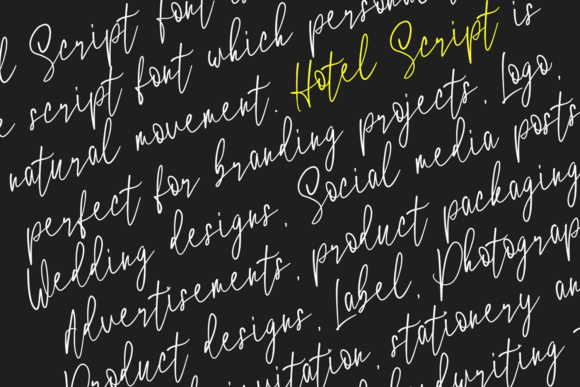 Script font
script font which
natural movement. Hotel Script is
perfect for branding projects, Logo,
Wedding designs, Social media posts,
Advertisements, product packaging
Product designs, Label, Photograp
invitation, stationery an
handwriting